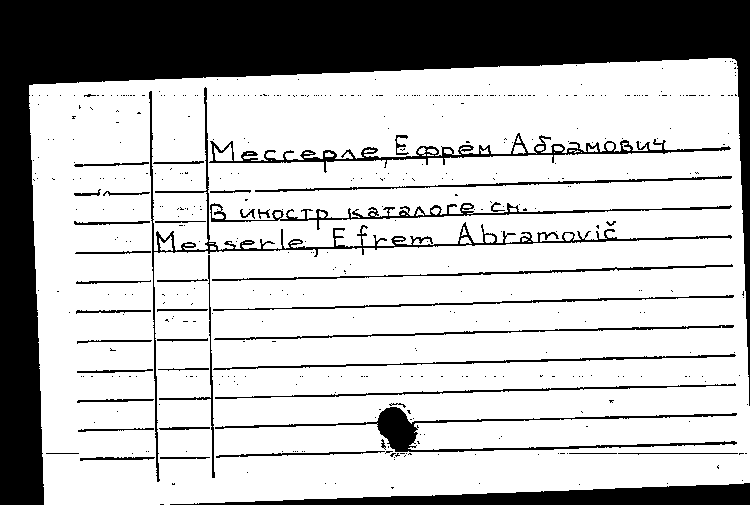 Мессерле, Ефрем Абрамович
В иностр каталоге см.
Messerle, Efrem Abramovič